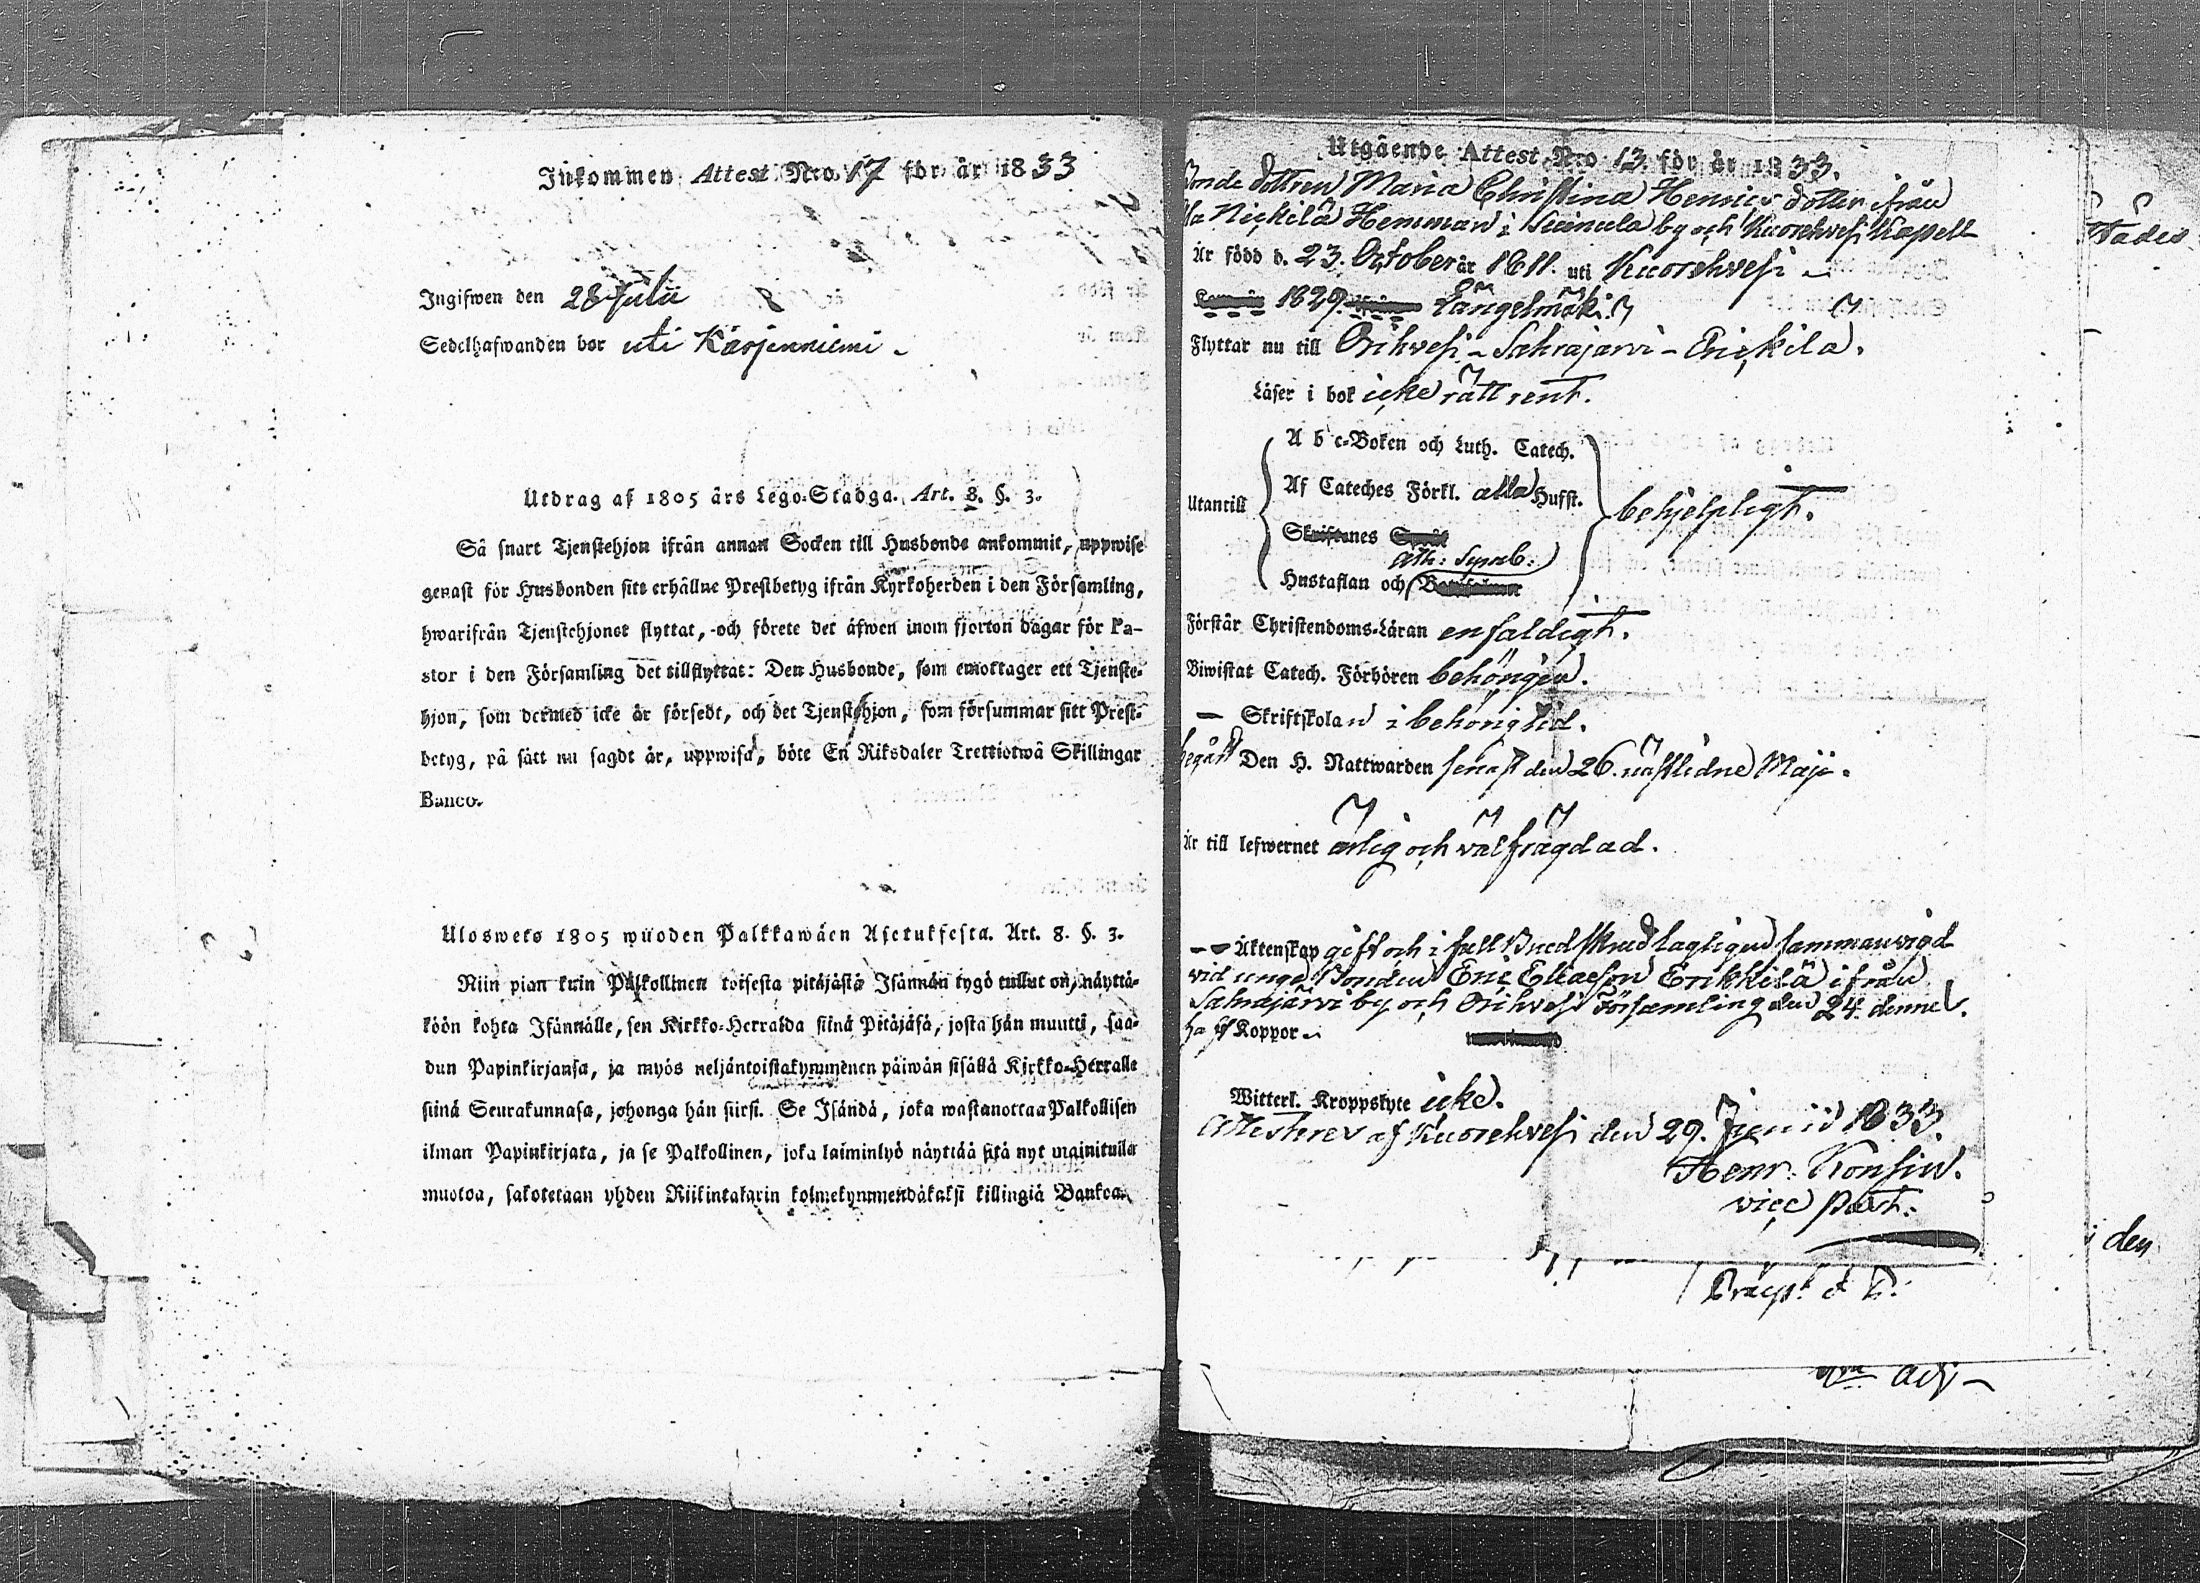 Inkommen Attest N:o 17 för år 1833
Ingifwen den 28 Julii
Sedelhafwanden bor uti Karjenniemi
Utdrag af 1805 års Lego-Stadga. Art. 8. §. 3.
Så snart Tjenstehjon ifrån annan Socken till Husbonde ankommit, uppwise
genast för Husbonden sitt erhållne Prestbetyg ifrån Kyrkoherden i den Församling,
hwarifrån Tjenstehjonet flyttat, och förete det äfwen inom fjorton dagar för Pa-
stor i den Församling det tillflyttat: Den Husbonde, som emottager ett Tjenste-
hjon, som dermed icke är försedt, och det Tjenstehjon, som försummar sitt Prest-
betyg, på sätt nu sagdt är, uppwisa, böte En Riksdaler Trettiotwå Skillingar
Banco.
Uloswets 1805 wuoden Palkkawäen Asetuksesta. Art. 8. §. 3.
Niin pian kuin Palkollinen toisesta pitäjästä Isännän tygö tullut on, näyttä-
köön kohta Isännälle, sen Kirkko-Herralda siinä Pitäjäsä, josta hän muutti, saa-
dun Papinkirjansa, ja myös neljäntoistakymmenen päiwän sisällä Kirkko-Herralle
siinä Seurakunnasa, johonga hän siirsi. Se Isändä, joka wastanottaa Palkollisen
ilman Papinkirjata, ja se Palkollinen, joka laiminlyö näyttää sitä nyt mainitulla
muotoa, sakotetaan yhden Riikintalarin kolmekymmendäkaksi killingiä Bankoa.
Utgående Attest N:o 13 för år 1833.
Bonde dottren Maria Christina Henrics dotter ifrån
Nickilä Hemman i Suinula by och Kuorehvesi Kapell
Är född d. 23. October år 1811. uti Kuorehvesi
1829. Längelmäki
Flyttar nu till Orihvesi - Sahrajarvi - Erickilä.
Läser i bok icke rätt rent.
A b c-Boken och Luth. Catech.
Utantill Af Cateches Förkl. alla Hufst. behjelpligt.
Skriftenes
Ath: Symb:
Hustaflan och
Förstår Christendoms-Läran enfaldigt.
Biwistat Catech. Förhören behörigen.
— Skriftskolan i behörig tid.
begått Den H. Nattwarden senast den 26. nästledne Maji.
Är till lefwernet ärlig och välfrägdad.
— Äktenskap gift och i full Brudskrud lagligen sammanvigd
vid unge Bonden Eric Eliaeson Erikkilä ifrån
Sahrajärvi by och Orihvesi Församling den 24. dennes.
Koppor
Witterl. Kroppslyte icke.
Attesteres af Kuorehvesi den 29. Junii 1833.
Henr: Konsin.
vice past.
i den